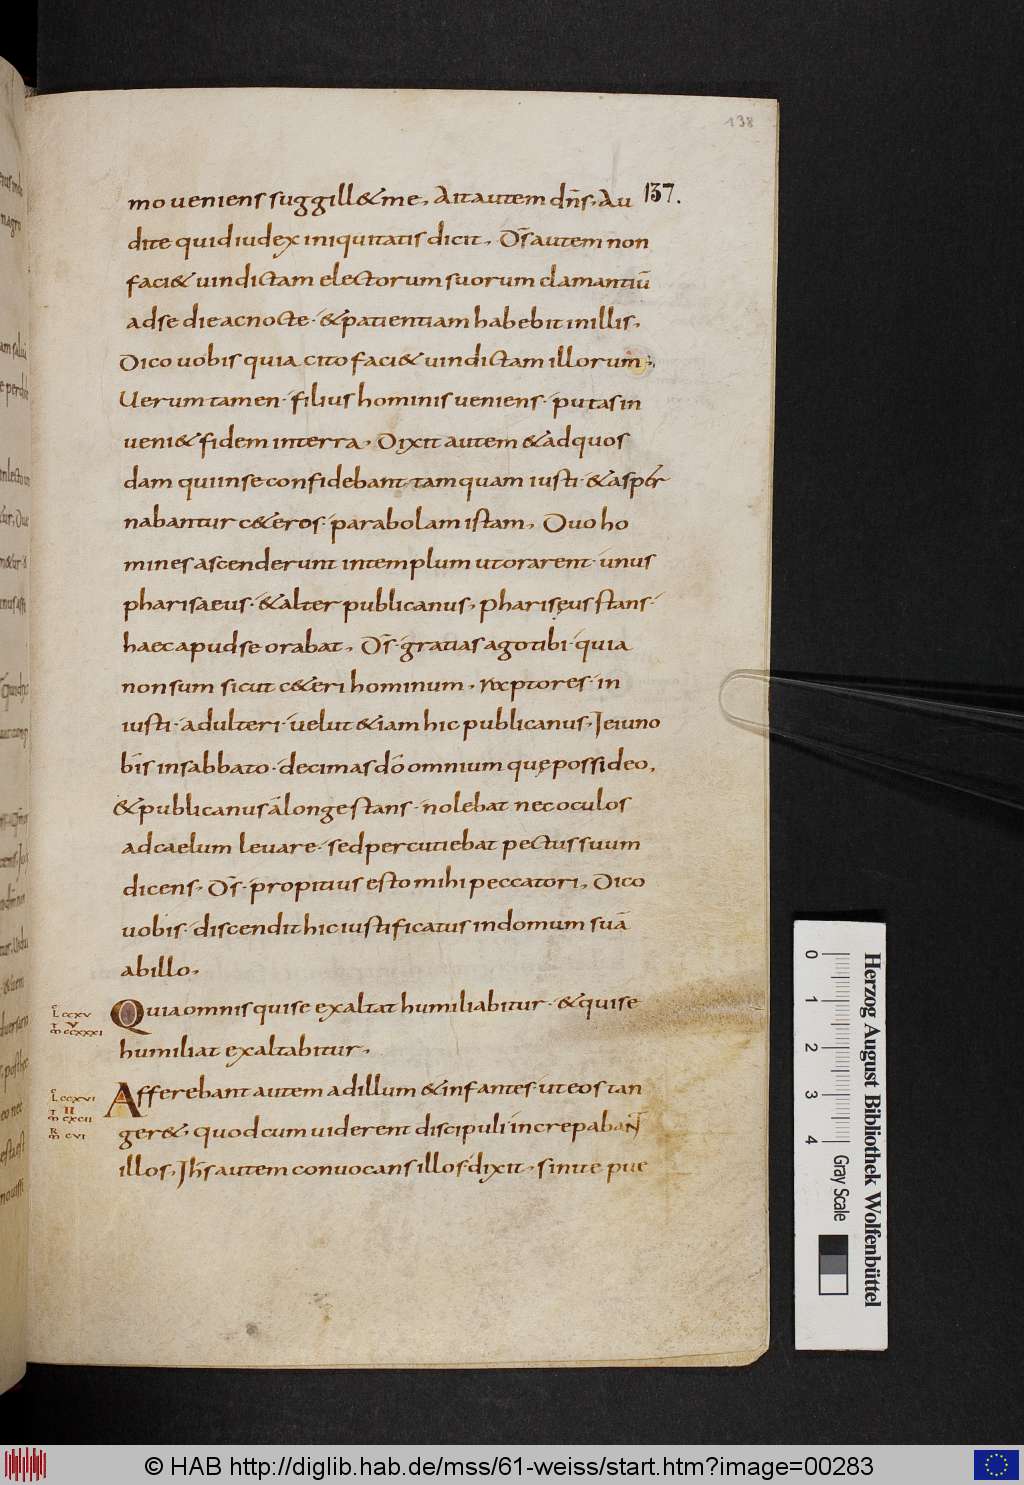 138
137.
mo ueniens suggill&me, Aitautem dn̄s, Au
dite quidiudex iniquitatis dicit, Ds̄ autem non
faci& uindictam electorum suorum clamantiū
adse die acnocte· &patientiam habebit inillis,
Dico uobis quia cito faci& uindictam illorum;
Uerum tamen· filius hominis ueniens· putasin
ueni& fidem interra, Dixit autem &adquos
dam quiinse confidebant tamquam iusti· &asper
nabantur c&eros· parabolam istam, Duo ho
mines ascenderunt intemplum utorarent· unus
pharisaeus· &alter publicanus, pharisęus stans·
haec apudse orabat, Ds̄· gratias agotibi· quia
nonsum sicut c&eri hominum, raptores· in
iusti· adulteri· uelut &iam hic publicanus, Ieiuno
bis insabbato· decimas dō omnium quępossideo,
&publicanus alonge stans· nolebat nec oculos
adcaelum leuare· sedpercutiebat pectus suum
dicens, Ds̄· propitius esto mihi peccatori, Dico
uobis· discendit hic iustificatus indomum suā
abillo,
Quia omnis quise exaltat humiliabitur· &quise
humiliat exaltabitur,
Afferebant autem adillum &infantes· uteos tan
ger&, quodcum uiderent discipuli increpabaNT
illos, Ihs̄ autem conuocans illos· dixit, sinite pue
L ccxv
V
m̄ ccxxxi
L ccxvi
II
m̄ cxcii
m̄ cvi
0 1 2 3 4
Gray Scale
Herzog August Bibliothek Wolfenbüttel
© HAB http://diglib.hab.de/mss/61-weiss/start.htm?image=00283